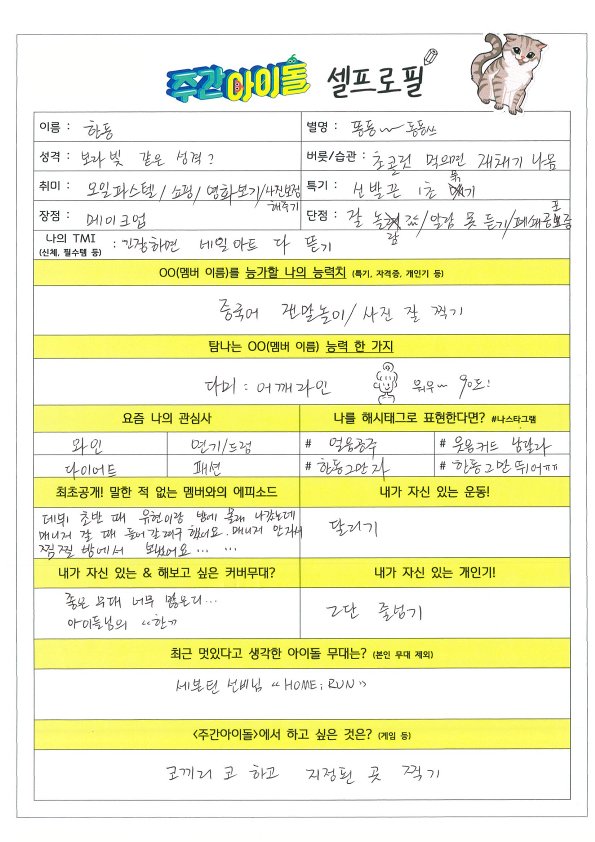 주간아이돌 셀프로필
이름 : 한동
별명 : 퐁동~ 동동쓰
성격 : 보라빛 같은 성격?
버릇/습관 : 초콜릿 먹으면 재채기 나옴
취미 : 오일파스텔/쇼핑/영화보기/사진보정
해주기
특기 : 신발끈 1초 묶기
장점 : 메이크업
단점 : 잘 놀람/알람 못 듣기/폐쇄공포증
나의 TMI : 긴장하면 네일아트 다 뜯기
(신체, 필수템 등)
OO(멤버 이름)를 능가할 나의 능력치 (특기, 자격증, 개인기 등)
중국어 잰말놀이/사진 잘 찍기
탐나는 OO(멤버 이름) 능력 한 가지
다미 : 어깨라인 워우~ 90도!
요즘 나의 관심사
나를 해시태그로 표현한다면? #나스타그램
와인 연기/드럼
# 얼음공주 # 웃음커트 낭달라
다이어트 패션
# 한동그만자 # 한동그만뛰어ㅠㅠ
최초공개! 말한 적 없는 멤버와의 에피소드
내가 자신 있는 운동!
데뷔 초반 때 유현이랑 밤에 몰래 나갔는데
매니저 잘 때 들어갈려구 했어요. 매니저 안자서
찜찔방에서 보냈어요... ...
달리기
내가 자신 있는 & 해보고 싶은 커버무대?
내가 자신 있는 개인기!
좋은 무대 너무 많은디...
아이들님의 "한"
2단 줄넘기
최근 멋있다고 생각한 아이돌 무대는? (본인 무대 제외)
세븐틴 선배님 "HOME;RUN"
<주간아이돌>에서 하고 싶은 것은? (게임 등)
코끼리 코 하고 지정된 곳 찍기